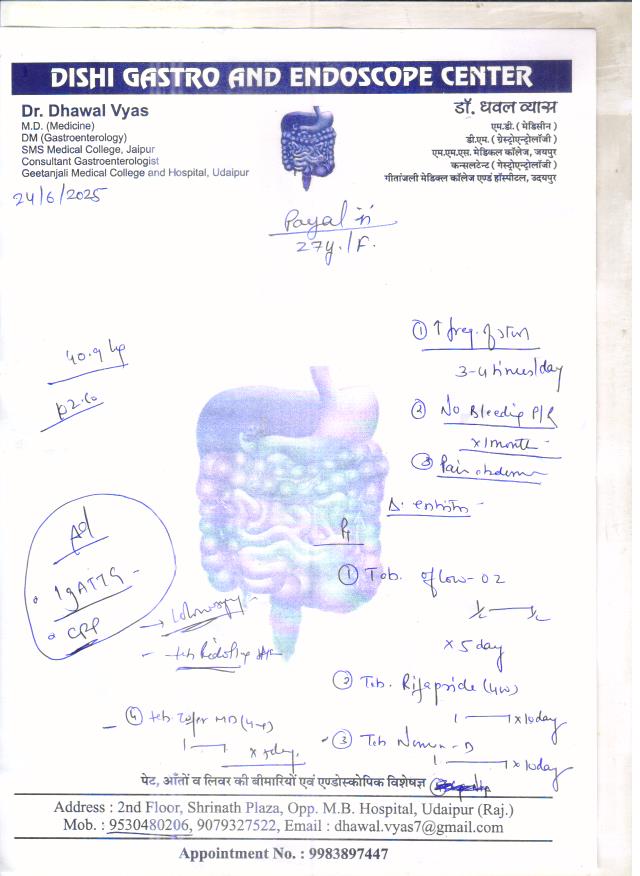 DISHI GASTRO AND ENDOSCOPE CENTER
Dr. Dhawal Vyas
M.D. (Medicine)
DM (Gastroenterology)
SMS Medical College, Jaipur
Consultant Gastroenterologist
Geetanjali Medical College and Hospital, Udaipur
डॉ. धवल व्यास
एम.डी. ( मेडिसीन )
डी.एम. ( गेस्ट्रोएन्ट्रोलॉजी )
एम.एम.एस. मेडिकल कॉलेज, जयपुर
कन्सलटेन्ट ( गेस्ट्रोएन्ट्रोलॉजी )
गीतांजली मेडिक्ल कॉलेज एण्ड हॉस्पीटल, उदयपुर
24/6/2025
Payal
27y./F.
① ↑ freq. of
3-4 times/day
40.9 kg
② No Bleeding P/R
x 1 month
③ Pain abdomen
Δ.
Ad
IgATTG
① Tab. Oflow-OZ
x 5 day
② Tab.
1 x 10day
④ tab MD
③ Tab - D
1 x 10day
पेट, आँतों व लिवर की बीमारियों एवं एण्डोस्कोपिक विशेषज्ञ
Address : 2nd Floor, Shrinath Plaza, Opp. M.B. Hospital, Udaipur (Raj.)
Mob. : 9530480206, 9079327522, Email : dhawal.vyas7@gmail.com
Appointment No. : 9983897447